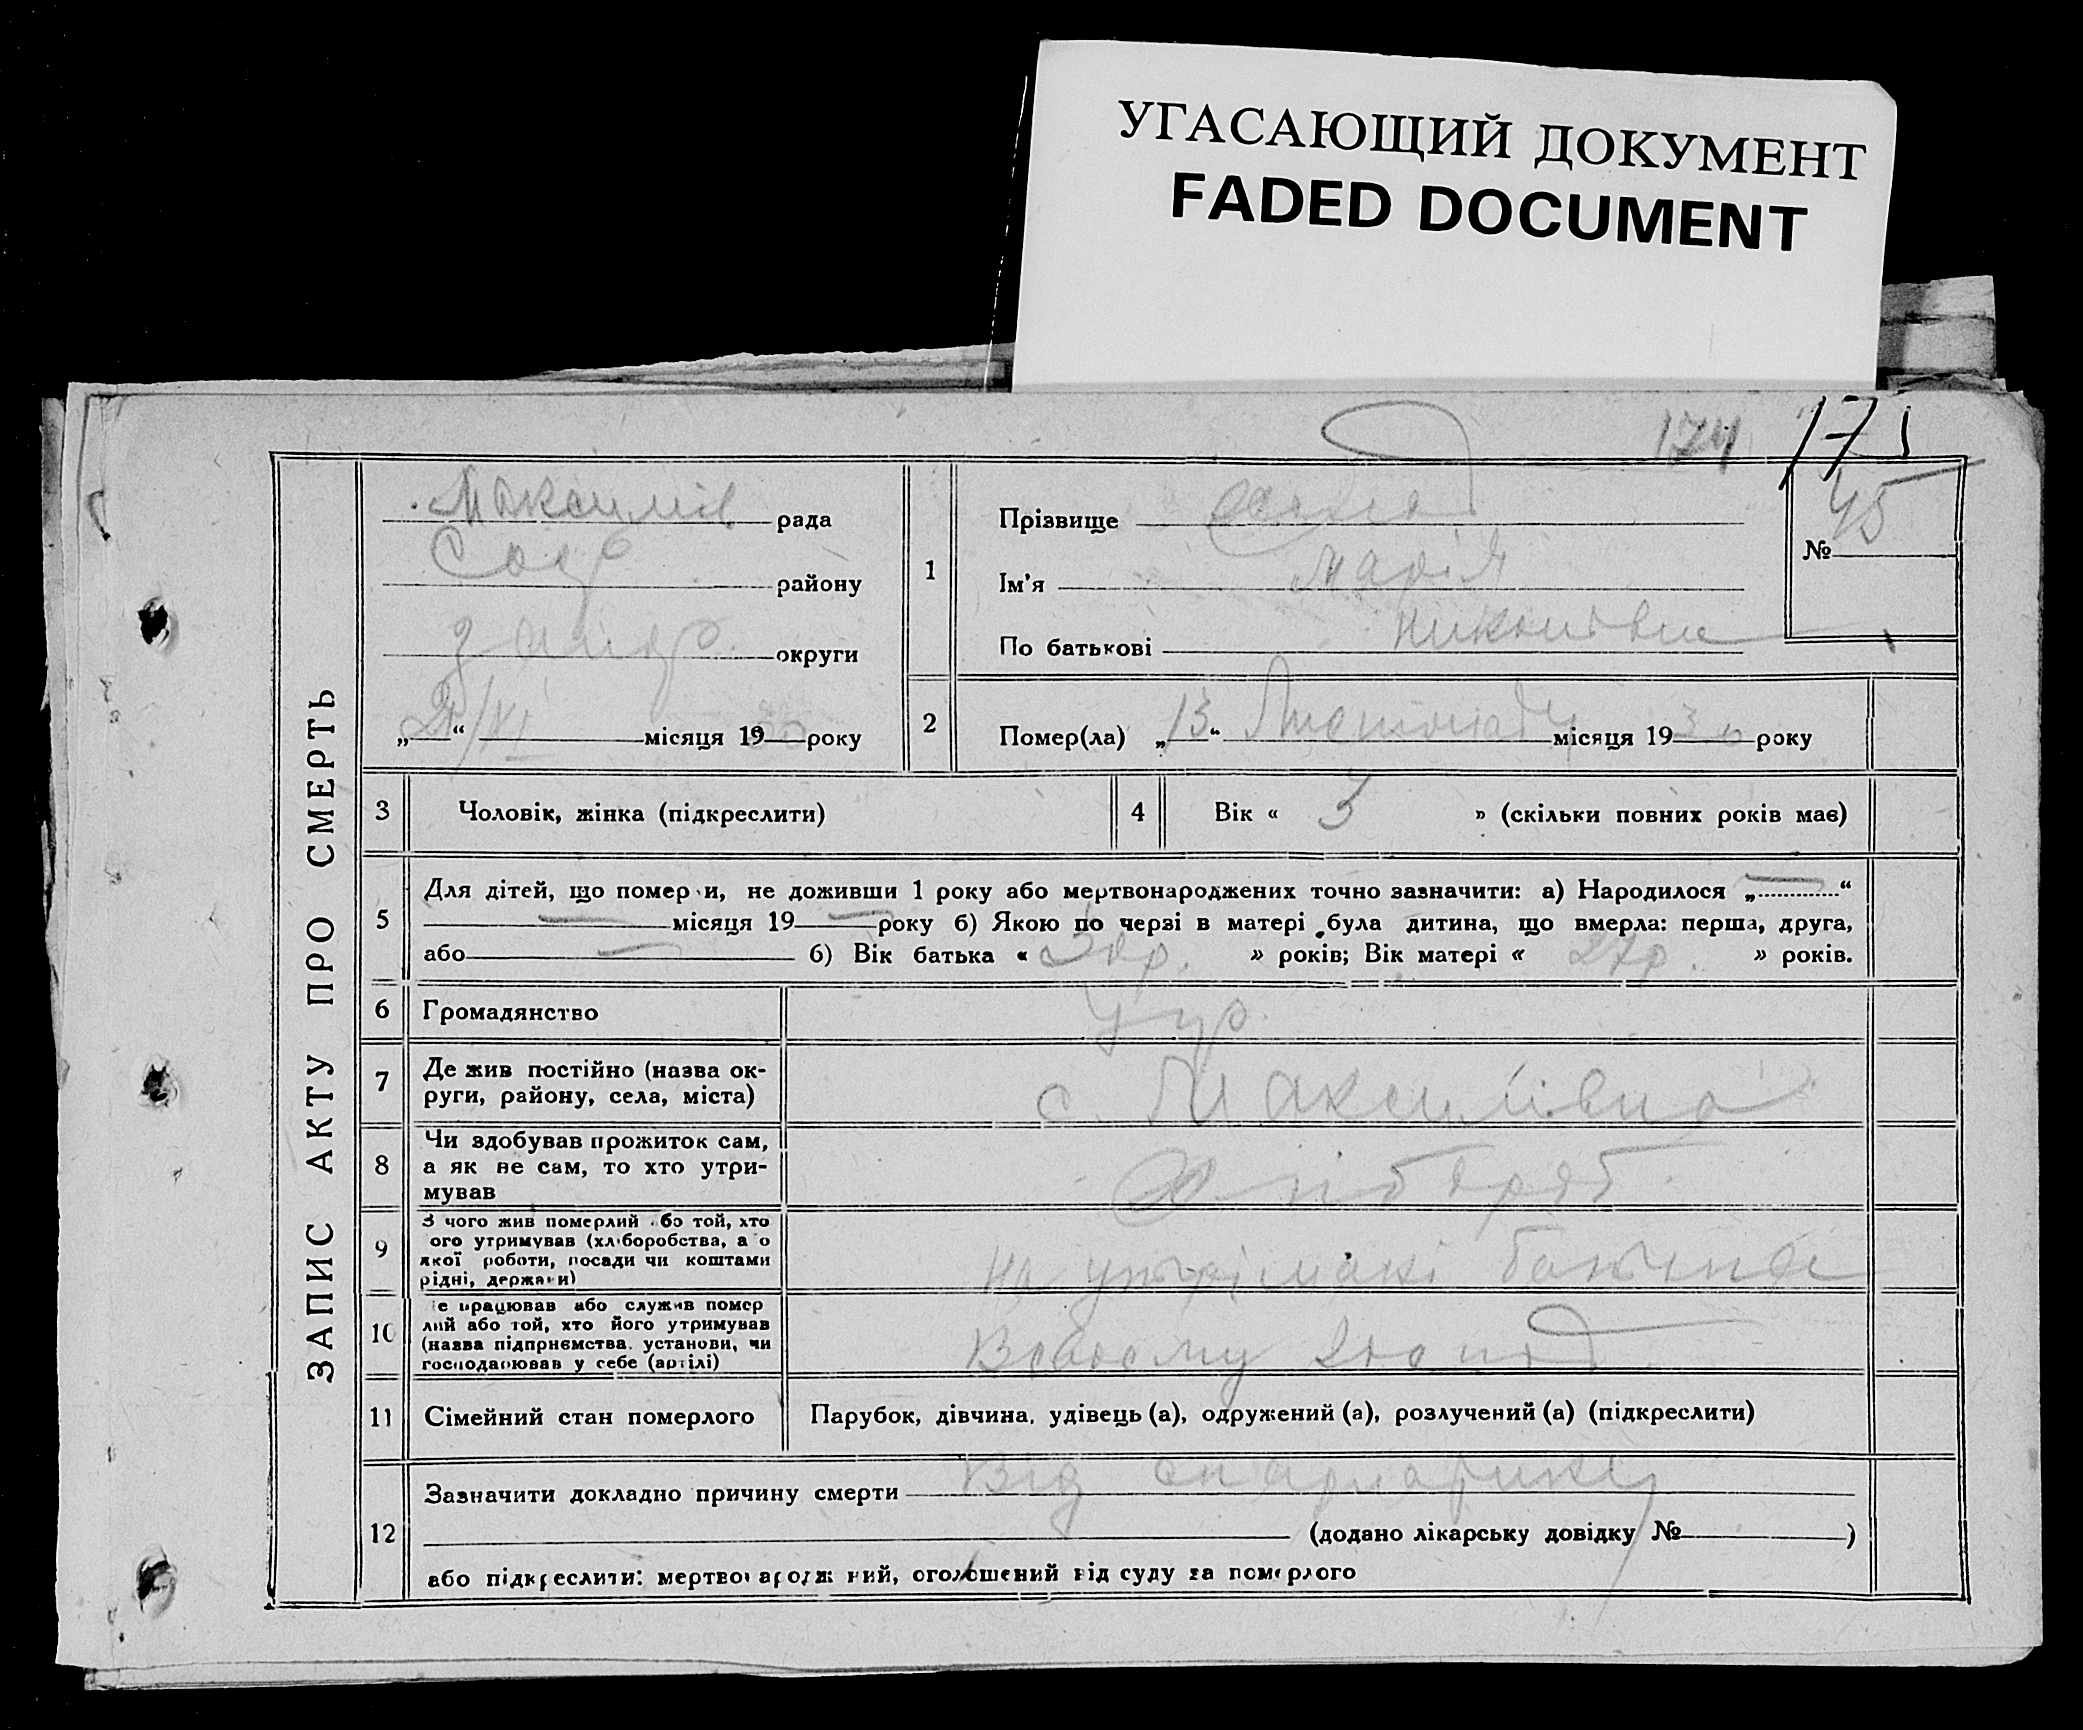 УГАСАЮЩИЙ ДОКУМЕНТ
FADED DOCUMENT
174 175
ЗАПИС АКТУ ПРО СМЕРТЬ
Максимів рада
району
округи
„21/XI“ місяця 1930 року
1
Прізвище
Ім'я Марія
По батькові
№ 45
2
Помер(ла) „13“ Листопаду місяця 1930 року
3 Чоловік, жінка (підкреслити)
4 Вік « 3 » (скільки повних років має)
5
Для дітей, що померли, не доживши 1 року або мертвонароджених точно зазначити: а) Народилося „—“
— місяця 19— року б) Якою по черзі в матері була дитина, що вмерла: перша, друга,
або — б) Вік батька « 30 р. » років; Вік матері « 27 р. » років.
6 Громадянство Укр.
7 Де жив постійно (назва округи, району, села, міста) с. Максимівка
8 Чи здобував прожиток сам, а як не сам, то хто утримував Хлібороб
9 З чого жив померлий або той, хто його утримував (хліборобства, або якої роботи, посади чи коштами рідні, держави) На утрімані
10 Де працював або служив померлий або той, хто його утримував (назва підприємства, установи, чи господарював у себе (артілі)
11 Сімейний стан померлого Парубок, дівчина, удівець (а), одружений (а), розлучений (а) (підкреслити)
12
Зазначити докладно причину смерти Від скарлатини
(додано лікарську довідку № )
або підкреслити: мертвонароджений, оголошений від суду за померлого